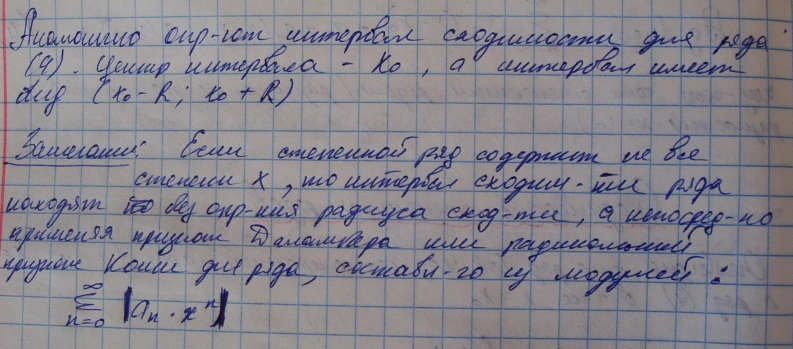 Аналогично опр-ют интервал сходимости для ряда
(4). Центр интервала - x₀, а интервал имеет
вид (x₀ - R; x₀ + R)
Замечание: Если степенной ряд содержит не все
степени x, то интервал сходим-ти ряда
находят без опр-ния радиуса сход-ти, а непосред-но
применяя признак Даламбера или радикальный
признак Коши для ряда, составл-го из модулей:
∞
∑ |aₙ · xⁿ|
n=0